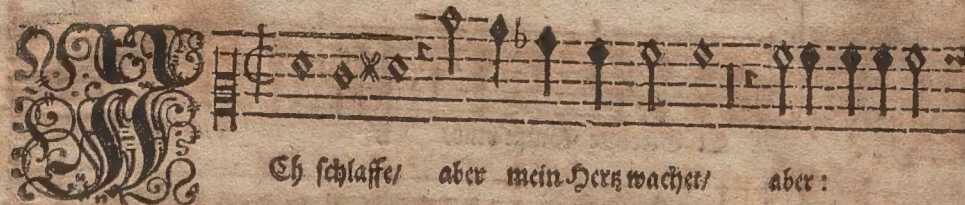 ICh schlaffe/ aber mein Hertz wachet/ aber: